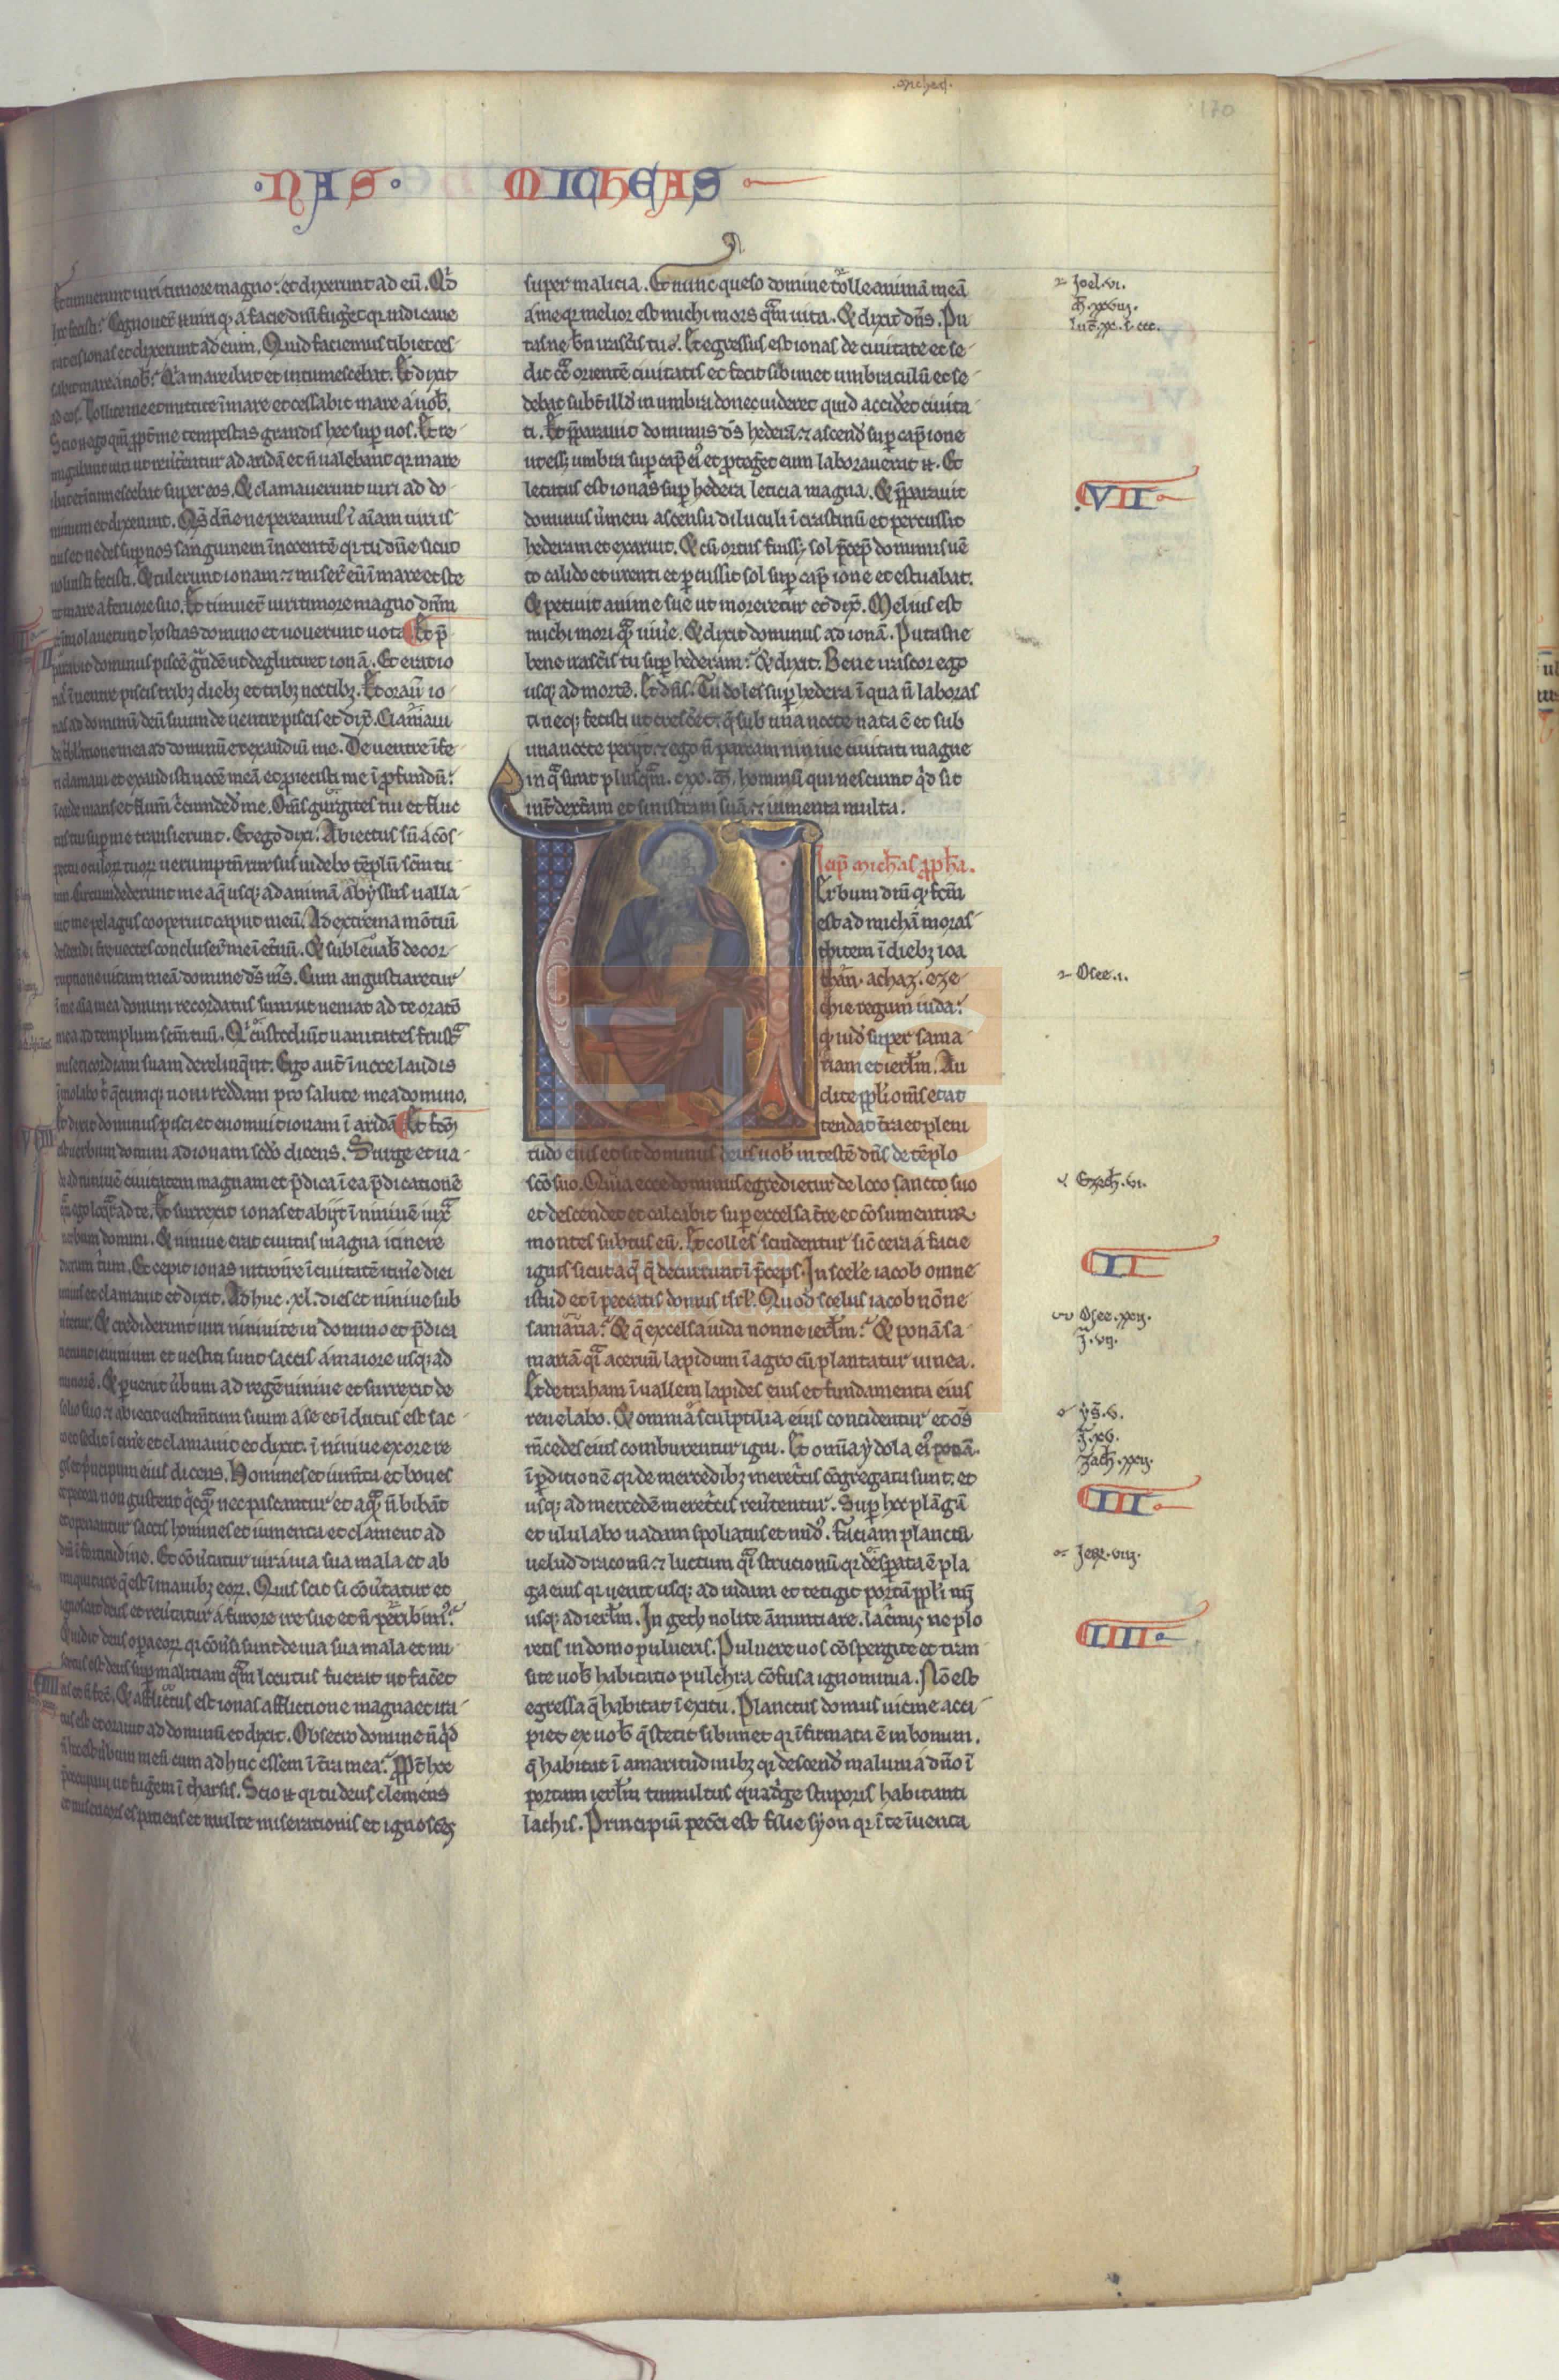 ·NAS· MICHEAS
170
Et timuerunt uiri timore magno: et dixerunt ad eū. Qd̄
hoc fecisti? Cognouer̄t .n. uiri q̄ a facie dn̄i fug̃et qr indicaue
rat eis ionas et dixerunt ad eum. Quid faciemus tibi et ces
sabit mare a nob̄? Qꝛ mare ibat et intumescebat. Et dixit
ad eos. Tollite me et mittite ī mare et cessabit mare a uob̄.
Scio .n. ego qm̄ ꝓpt̄ me tempestas grandis hec suꝑ uos. Et re
migabant uiri ut reūt̃entur ad aridā et n̄ ualebant qr mare
ibat et intumescebat super eos. Et clamauerunt uiri ad do
minum et dixerunt. Qs̄ dn̄e ne pereamus ī aīam uiri is
tius et ne des suꝑ nos sanguinem īnocentē qr tu dn̄e sicut
uoluisti fecisti. Et tulerunt ionam ⁊ miser̄t eū ī mare et ste
tit mare a feruore suo. Et timuer̄t uiri timore magno dn̄m
⁊ īmolauerunt hostias domino et uouerunt uota. Et p̄
parauit dominus piscē g̃ndē ut deglutiret ionā. Et erat io
nas ī uentre piscis tribꝫ diebꝫ et tribꝫ noctibꝫ. Et orauit io
nas ad dominū deū suum de uentre piscis et dix̄. Clamaui
de t̄bulatione mea ad dominū et exaudiuit me. De uentre īfe
ri clamaui et exaudisti uocē meā et ꝓiecisti me ī ꝓfundū:
ī corde maris et flum̄ c̄cundedit me. Om̄s gurgites tui et fluc
tus tui suꝑ me transierunt. Et ego dixi. Abiectus sū a cōs
pectu oculoꝝ tuoꝝ uerumptn̄ rursus uidebo tēplū sc̄m tu
um. Circumdederunt me aq̄ usqꝫ ad animā abyssus ualla
uit me pelagus cooperuit caput meū. Ad extrema mōtiū
descendi t̄re uectes concluser̄t me ī et̄nū. Et subleuab̄ de cor
ruptione uitam meā domine ds̄ ms̄. Cum angustiaretur
ī me aīa mea domini recordatus sum ut ueniat ad te oratō
mea ad templum sc̄m tuū. Qi custodiūt uanitates frustᵃ
misericordiam suam derelinq̄nt. Ego aut̄ ī uoce laudis
īmolabo t̄ q̄cumqꝫ uoui reddam pro salute mea domino.
Et dixit dominus pisci et euomuit ionam ī aridā. Et fc̄m̄
est uerbum domini ad ionam scd̄o dicens. Surge et ua
de ad niniuē ciuitatem magnam et p̄dica ī ea p̄dicationē
q̄m ego loqr ad te. Et surrexit ionas et abijt ī niniuē iuxᵃ
uerbum domini. Et niniue erat ciuitas magna itinere
dierum t̄um. Et cepit ionas introire ī ciuitatē itin̄e diei
unius et clamauit et dixit. Ad huc .xl. dies et niniue sub
uertetur. Et crediderunt uiri niniuite in domino et p̄dica
uerunt ieiunium et uestiti sunt saccis a maiore usqꝫ ad
minorē. Et ꝑuenit ūbum ad regē niniue et surrexit de
solio suo ⁊ abiecit uestim̄tum suum a se et īdutus est sac
co et sedit ī cin̄e et clamauit et dixit. ī niniue ex ore re
gis et p̄ncipum eius dicens. Homines et ium̄ta et boues
et pecora non gustent q̄cqᵃ nec pascantur et aqᵃ n̄ bibāt
et operiantur saccis homines et iumenta et clament ad
dn̄m ī fortitudine. Et cōūtatur uir a uia sua mala et ab
iniquitate q̄ est ī manibꝫ eoꝝ. Quis scit si cōūtatur et
ignoscat deus et reūtatur a furore ire sue et n̄ peribim᷒?
Et uidit deus oꝑa eoꝝ qr cōūsi sunt de uia sua mala et mi
sertus est deus suꝑ malitiam qᵃm locutus fuerat ut fac̄et
eis et n̄ fec̄. Et afflictus est ionas afflictione magna et ira
tus est et orauit ad dominū et dixit. Obsecro domine nūqd̄
n̄ hoc est ūbum meū cum ad huc essem ī t̄ra mea? ꝓpt̄ hoc
p̄occupaui ut fug̃em ī tharsis. Scio .n. qr tu deus clemens
et misericors es patiens et multe miserationis et ignoscēs
super malicia. Et nunc queso domine tolle animā meā
a me qr melior est michi mors qᵃm uita. Et dixit dn̄s. Pu
tas ne bn̄ irasc̄is tu. Et egressus est ionas de ciuitate et se
dit cō orientē ciuitatis et fecit sibimet umbraculū et se
debat subt̄ illd̄ in umbra donec uideret quid accidēt ciuita
ti. Et p̄parauit dominus ds̄ hederā ⁊ ascend̄ suꝑ cap̄ ione
ut essꝫ umbra suꝑ cap̄ ei᷒ et ꝓteḡet eum laborauerat .n. Et
letatus est ionas suꝑ hedera leticia magna. Et p̄parauit
dominus ūmem ascensu diluculi ī crastinū et percussit
hederam et exaruit. Et cū ortus fuissꝫ sol p̄cep̄ dominus uē
to calido et urenti et ꝑcussit sol suꝑ cap̄ ione et estuabat.
Et petiuit anime sue ut moreretur et dix̄. Melius est
michi mori qᵃ uiūe. Et dixit dominus ad ionā. Putasne
bene irasc̄is tu suꝑ hederam? Et dixit. Bene irascor ego
usqꝫ ad mortē. Et dn̄s. Tu doles suꝑ hedera ī qua n̄ laboras
ti neqꝫ fecisti ut cresc̄et. q̄ sub una nocte nata ē et sub
una nocte perijt. ⁊ ego n̄ parcam niniue ciuitati magne
in qᵃ sunt plusqᵃm .cxx. m̄. hominū qui nesciunt qd̄ sit
int̄ dext̄am et sinistram suā ⁊ iumenta multa.
Icip̄ micheas ꝓph̄a.
Erbum dn̄i q̄ fc̄m
est ad micheā moras
thitem ī diebꝫ ioa
than. achaz. eze
chie regum iuda?
q̄ uidit super sama
riam et ierl̄m. Au
dite ppl̄i om̄s et at
tendat t̄ra et pleni
tudo eius et sit dominus deus uob̄ in testē dn̄s de tēplo
scō suo. Quia ecce dominus egredietur de loco sancto suo
et descendet et calcabit suꝑ excelsa t̄re et cōsumentur
montes subtus eū. Et colles scindentur sic̄ cera a facie
ignis sicut aq̄ q̄ decurrunt ī p̄ceps. In scel̄e iacob omne
istud et ī peccatis domus isrl̄. Quod scelus iacob nōne
samaria? Et q̄ excelsa iuda nonne ierl̄m? Et ponā sa
mariā qᵃi aceruū lapidum ī agro cū plantatur uinea.
Et detraham ī uallem lapides eius et fundamenta eius
reuelabo. Et omnia sculptilia eius concidentur et om̄s
m̄cedes eius comburentur igni. Et omīa ydola ei᷒ ponā
ī ꝑditionē qr de mercedibꝫ meret̄cis cōgregata sunt: et
usqꝫ ad mercedē meret̄cis reūtentur. Suꝑ hoc plāgā
et ululabo uadam spoliatus et nud᷒. faciam planctū
uelud draconū ⁊ luctum qᵃi strucionū qr desꝑata ē pla
ga eius qr uenit usqꝫ ad iudam et tetigit portā ppl̄i mī
usqꝫ ad ierl̄m. In geth nolite ānuntiare. lacrimis ne plo
retis in domo pulueris. Puluere uos cōspergite et tran
site uob̄ habitatio pulchra cōfusa ignominia. Nō est
egressa q̄ habitat ī exitu. Planctus domus uicine acci
piet ex uob̄ q̄ stetit sibimet qr īfirmata ē in bonum.
q̄ habitat ī amaritudinibꝫ qr descend̄ malum a dn̄o ī
portam ierl̄m tumultus quadrige stuporis habitanti
lachis. Principiū pecc̄i est filie syon qr ī te īuenta
Joel .vi.
VII
Osee .i.
Ezech. vi.
II
Osee. xxij.
J. vij.
ys̄. v.
J. xv.
Zach. xxij.
III
Jere. viij.
IIII